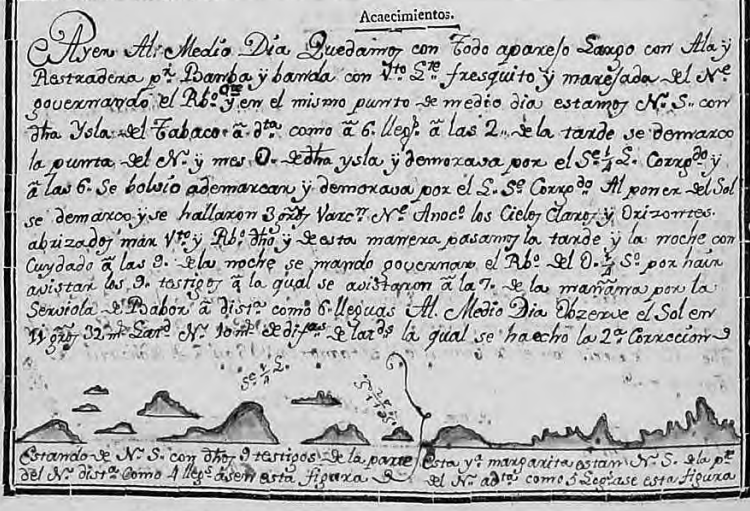 Acaecimientos.
Ayer Al Medio Dia Quedamos con Todo aparejo Largo con Ala y
Rastradera pr. Bamba ÿ banda con Vto. Lte. fresquito ÿ marejada del Ne.
governando el Rbo. ÿ en el mismo punto de medio dia estamos No. S. con
dha Ysla del Tabaco â dta. como â 6. llegs. â las 2. de la tarde se demarco
la punta del No. ÿ mes O. de dha ysla ÿ demorava por el Se. 1/4 L. Corrgdo. y
â las 6. Se bolvio a demarcar y demorava por el L. Se. Corrgdo. Al poner del Sol
se demarco y se hallaron 3 gros. Varcn. Ne. Anoco. los Cielos Claros y Orizontes.
abrizados mar Vto. y Rbo. dho. ÿ de esta manera pasamos la tarde ÿ la noche con
Cuydado â las 9. de la noche se mando governar el Rbo. del O. 1/4 So. por hair
avistar los 9. testigos â la qual se avistaron â la 7. de la mañana por la
Serviola de Babor â dista. como 6. lleguas Al Medio Dia Obzerve el Sol en
11 gros. 32 mt. Lard. No. 10 mt. de difas. de lards. la qual se haecho la 2a. Correcion
Se. 1/4 L.
Estando de No. S. con dhos. 9 testigos de la parte
del No. dista. Como 4 llegs. âsen esta figura
Esta ya. margarita estan No. S. de la pte.
del No. adta. como 5 Legs. ase esta figura